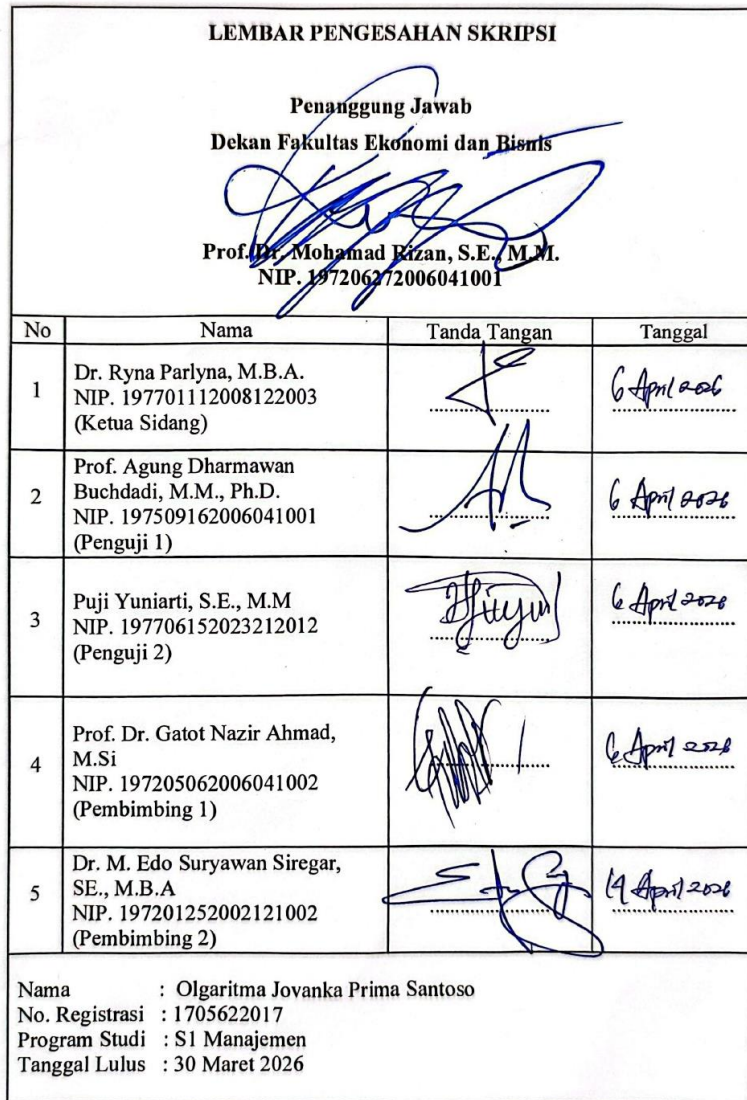 LEMBAR PENGESAHAN SKRIPSI
Penanggung Jawab
Dekan Fakultas Ekonomi dan Bisnis
Prof. Dr. Mohamad Rizan, S.E., M.M.
NIP. 197206272006041001
No Nama Tanda Tangan Tanggal
1
Dr. Ryna Parlyna, M.B.A.
NIP. 197701112008122003
(Ketua Sidang)
6 April 2026
2
Prof. Agung Dharmawan
Buchdadi, M.M., Ph.D.
NIP. 197509162006041001
(Penguji 1)
6 April 2026
3
Puji Yuniarti, S.E., M.M
NIP. 197706152023212012
(Penguji 2)
6 April 2026
4
Prof. Dr. Gatot Nazir Ahmad,
M.Si
NIP. 197205062006041002
(Pembimbing 1)
6 April 2026
5
Dr. M. Edo Suryawan Siregar,
SE., M.B.A
NIP. 197201252002121002
(Pembimbing 2)
14 April 2026
Nama : Olgaritma Jovanka Prima Santoso
No. Registrasi : 1705622017
Program Studi : S1 Manajemen
Tanggal Lulus : 30 Maret 2026